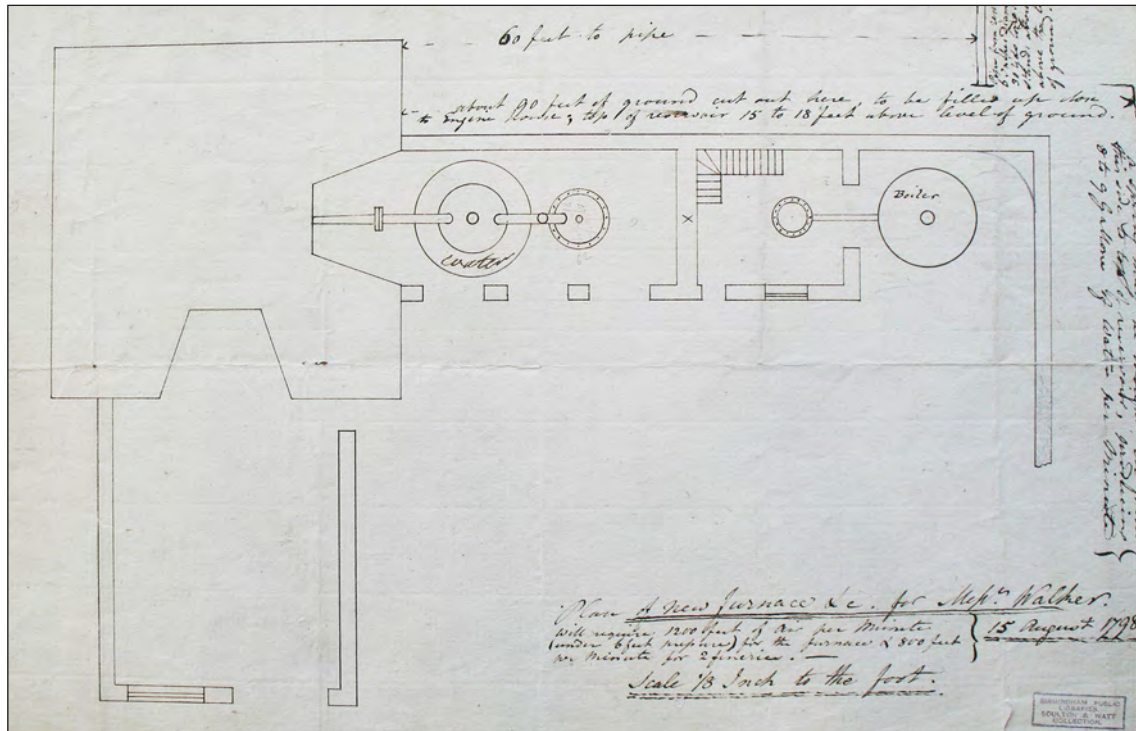 60 feet to pipe
about 90 feet of ground cut out here, to be filled up close
to Engine house, top of reservoir 15 to 18 feet above level of ground.
above
of ground.
this side & top of reservoir, producing
8 to 9 Gallons of Water per Minute
Boiler
Water
Plan of New furnace &c. for Messrs Walker.
Will require 1200 feet of Air per Minute
(under 6 feet pressure) for the furnace & 800 feet
per Minute for 2 fineries.
15 August 1798
Scale 1/8 Inch to the foot.
BIRMINGHAM PUBLIC
LIBRARIES
BOULTON & WATT
COLLECTION